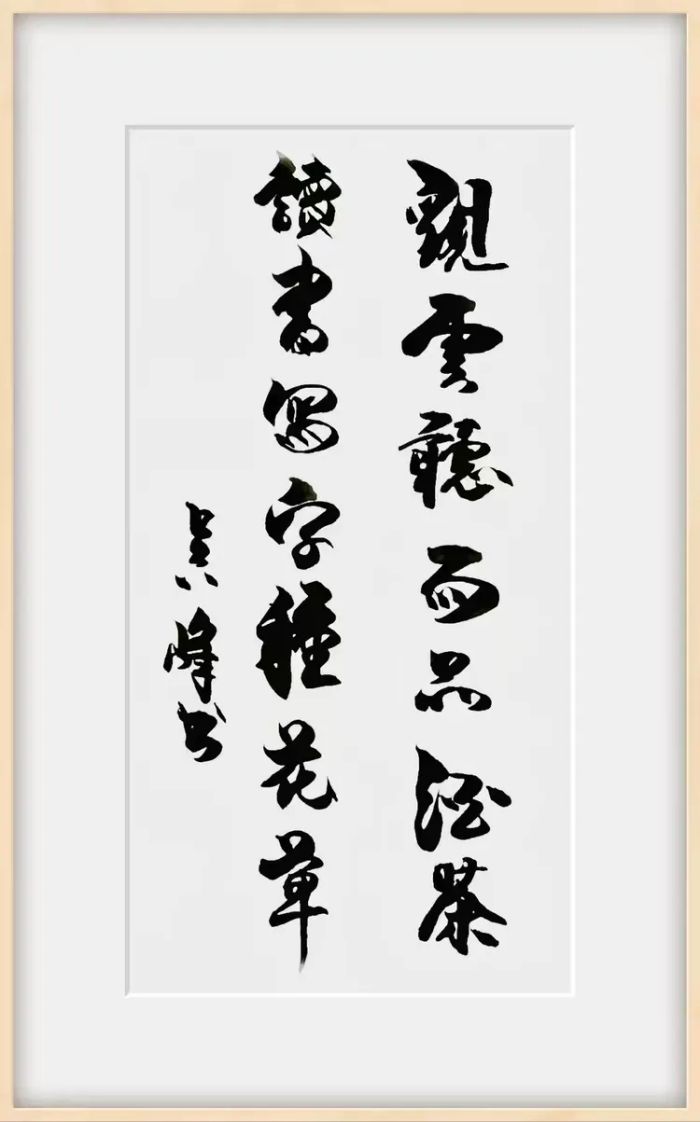 觀雲聽雨品酒茶
讀書寫字種花草
吳峰书